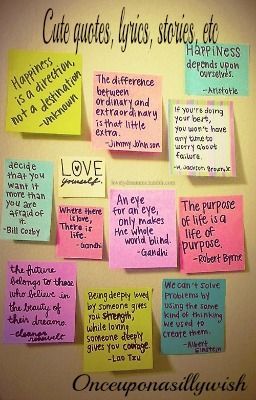 Cute quotes, lyrics, stories, etc
Happiness
is a direction,
not a destination
-unknown
The difference
between
ordinary and
extraordinary
is that little
extra.
-Jimmy Johnson
Happiness
depends upon
ourselves.
-Aristotle
If you're
doing your
best, you
won't have
any time to
worry about
failure.
-H. Jackson Brown, Jr.
decide
that you
want it
more than
you are
afraid of
it.
-Bill Cosby
LOVE
yourself.
Where there
is love,
There is
life.
-Gandhi
An eye
for an eye,
only makes
the whole
world blind.
-Gandhi
The purpose
of life is a
life of
purpose.
-Robert Byrne
the future
belongs to those
who believe in
the beauty of
their dreams.
-eleanor
roosevelt
Being deeply loved
by someone gives
you strength,
while loving
someone deeply
gives you courage.
-Lao Tzu
We can't solve
problems by
using the same
kind of thinking
we used to
create them.
-Albert
Einstein
Onceuponasillywish